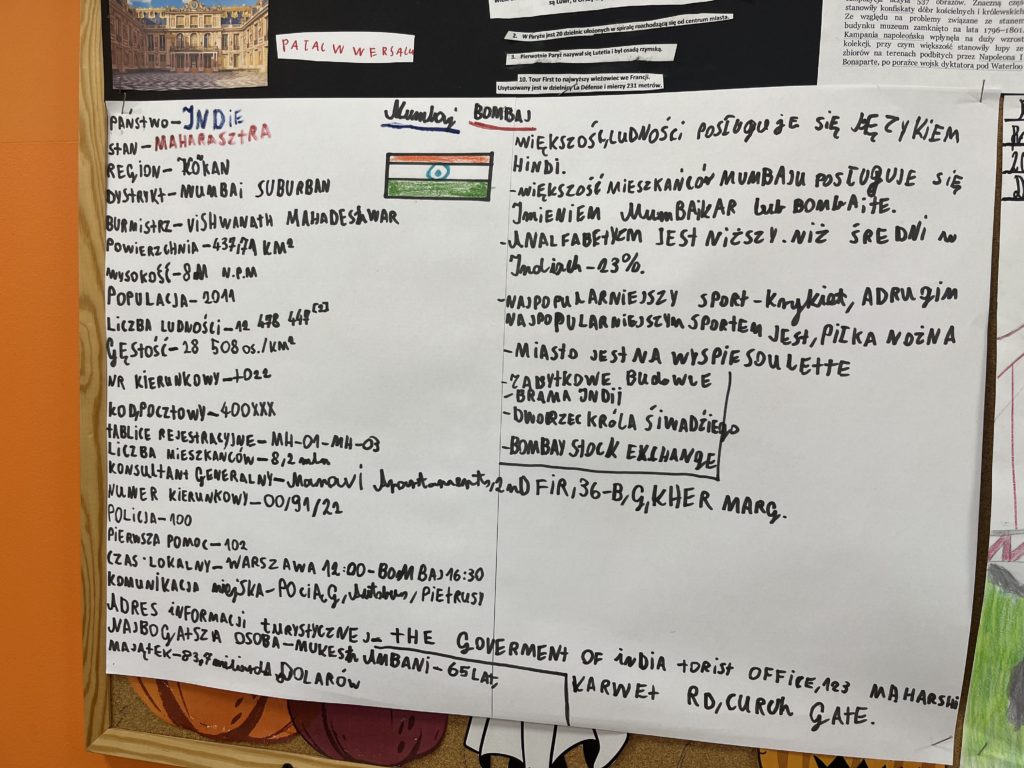 PAŁAC W WERSALU
2. W Paryżu jest 20 dzielnic ułożonych w spiralę rozchodzącą się od centrum miasta.
3. Pierwotnie Paryż nazywał się Lutetia i był osadą rzymską.
10. Tour First to najwyższy wieżowiec we Francji.
Usytuowany jest w dzielnicy La Défense i mierzy 231 metrów.
537 obrazów. Znaczną część
stanowiły konfiskaty dóbr kościelnych i królewskich
Ze względu na problemy związane ze stanem
budynku muzeum zamknięto na lata 1796-1801.
Kampania napoleońska wpłynęła na duży wzrost
kolekcji, przy czym większość stanowiły łupy ze
zbiorów na terenach podbitych przez Napoleona I
Bonaparte, po porażce wojsk dyktatora pod Waterloo
Mumbaj BOMBAJ
PAŃSTWO-INDIE
STAN-MAHARASZTRA
REGION-KOKAN
DYSTRYKT-MUMBAI SUBURBAN
BURMISTRZ-VISHWANATH MAHADESHWAR
POWIERZCHNIA-437,71 KM²
WYSOKOŚĆ-8M N.P.M
POPULACJA-2011
LICZBA LUDNOŚCI-12 478 447[2]
GĘSTOŚĆ-28 508 OS./KM²
NR KIERUNKOWY-+022
KOD,POCZTOWY-400XXX
TABLICE REJESTRACYJNE-MH-01-MH-03
LICZBA MIESZKAŃCÓW-8,2 mln
KONSULTANT GENERALNY-Manavi Apartments,2ND FlR,36-B,G,KHER MARG.
NUMER KIERUNKOWY-00/91/22
POLICJA-100
PIERWSZA POMOC-102
CZAS LOKALNY-WARSZAWA 12:00-BOMBAJ 16:30
KOMUNIKACJA MIEJSKA-POCIĄG, Autobus, PIETRUSY
ADRES INFORMACJI TURYSTYCZNEJ-THE GOVERMENT OF INDIA TORIST OFFICE,123 MAHARSKI
KARWET RD,CURCH GATE.
NAJBOGATSZA OSOBA-MUKESH AMBANI-65 LAT,
MAJĄTEK-83,7 miliarda DOLARÓW
WIĘKSZOŚĆ,LUDNOŚCI POSŁUGUJE SIĘ JĘZYKIEM
HINDI.
-WIĘKSZOŚĆ MIESZKAŃCÓW MUMBAJU POSŁUGUJE SIĘ
IMIENIEM MUMBAJKAR lub BOMBAJTE.
-ANALFABETYZM JEST NIŻSZY.NIŻ ŚREDNI w
Indiach-23%.
-NAJPOPULARNIEJSZY SPORT-Krykiet, A DRUGIM
NAJPOPULARNIEJSZYM SPORTEM JEST, PIŁKA NOŻNA
-MIASTO JEST NA WYSPIE SOULETTE
-ZABYTKOWE BUDOWLE
-BRAMA INDII
-DWORZEC KRÓLA ŚIWADŹIEGO
-BOMBAY STOCK EXCHANGE